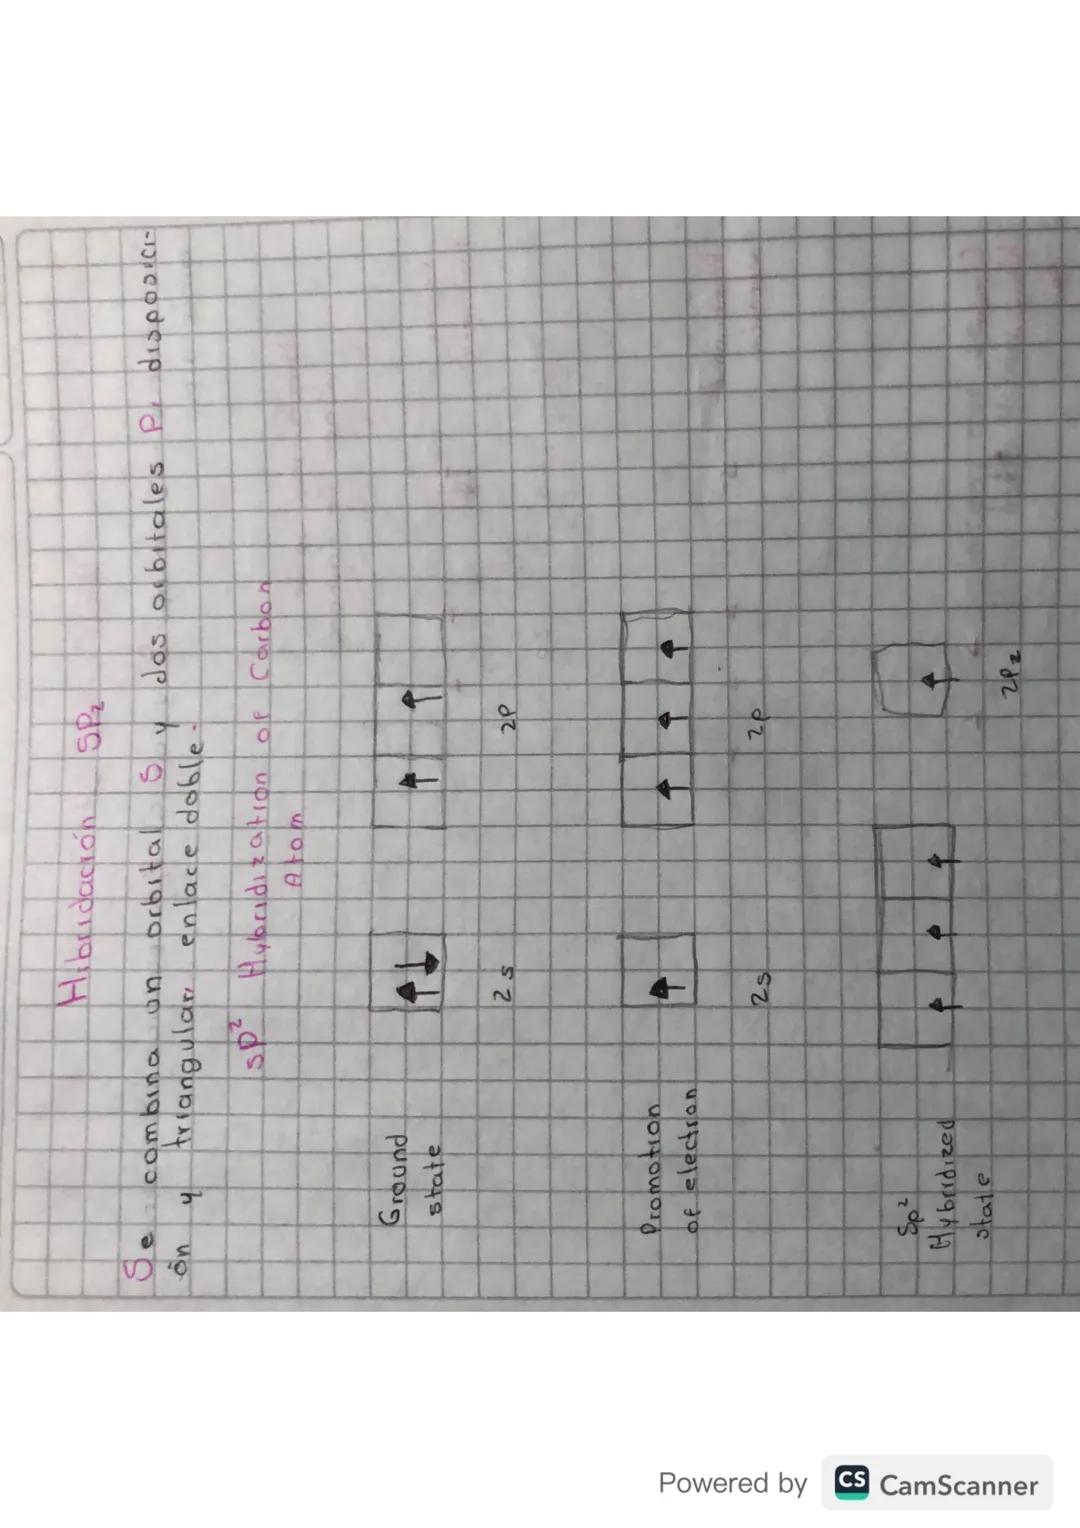 Hibridación SP₂
Se combina un orbital S y dos orbitales P, disposici-
ón y triangular, enlace doble.
sp² Hybridization of Carbon
Atom
Ground
state
2s
2p
Promotion
of electron
2s
2p
Sp²
Hybridized
state
2Pz
Powered by CS CamScanner